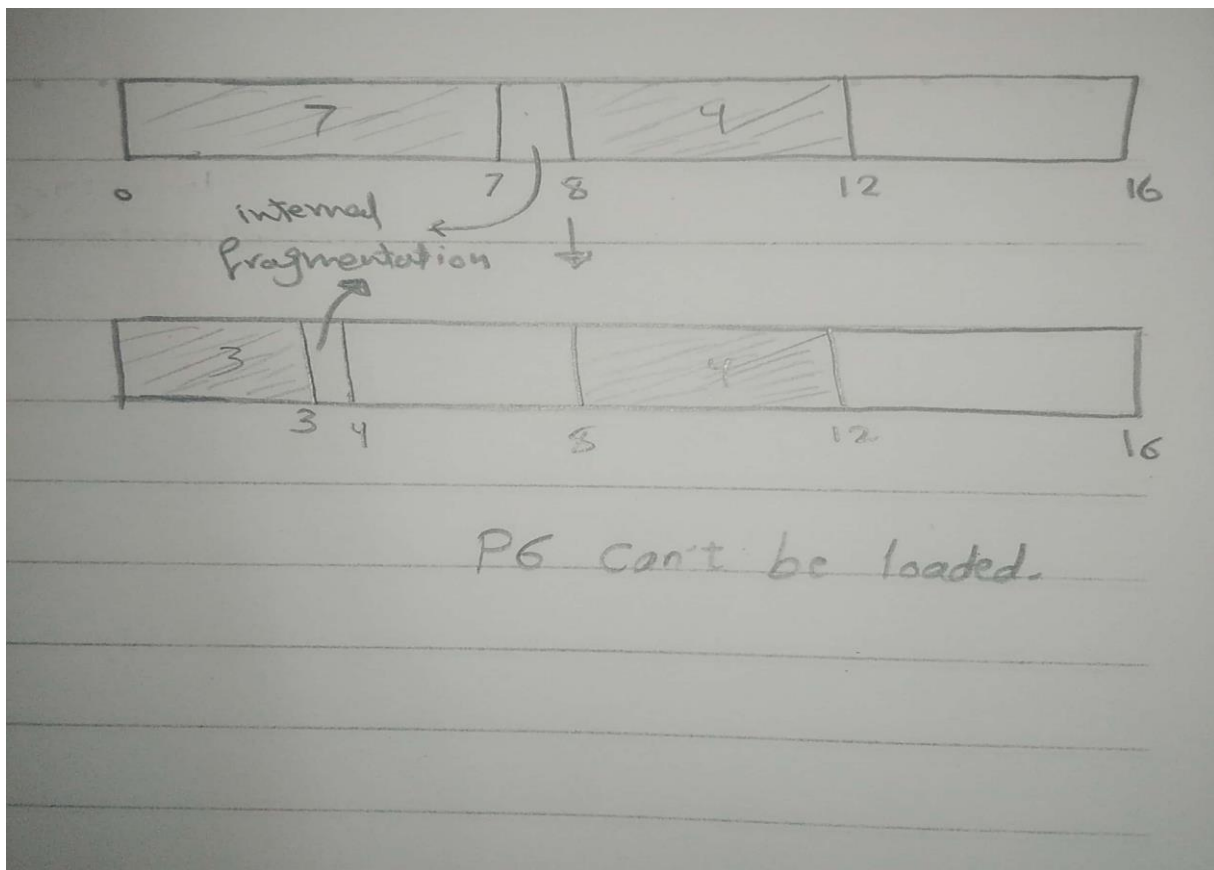 7 4
0 7 8 12 16
internal
fragmentation
3 4
3 4 8 12 16
P6 can't be loaded.